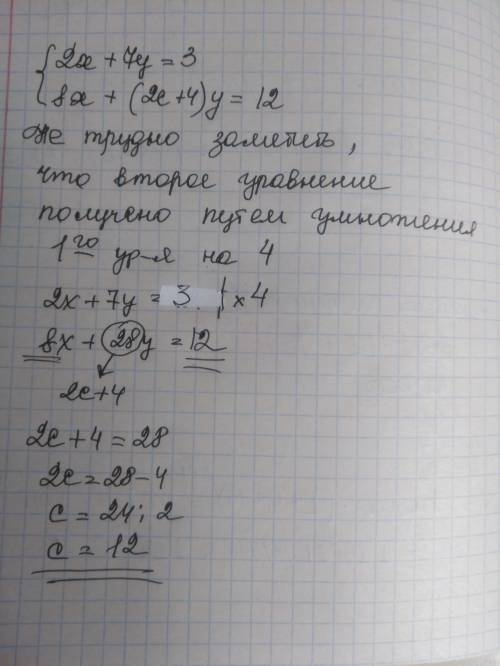 {2x + 7y = 3
{8x + (2c+4)y = 12
Не трудно заметить,
что второе уравнение
получено путем умножения
1го ур-я на 4
2x + 7y = 3 | x 4
8x + 28y = 12
2c+4
2c + 4 = 28
2c = 28 - 4
c = 24 : 2
c = 12